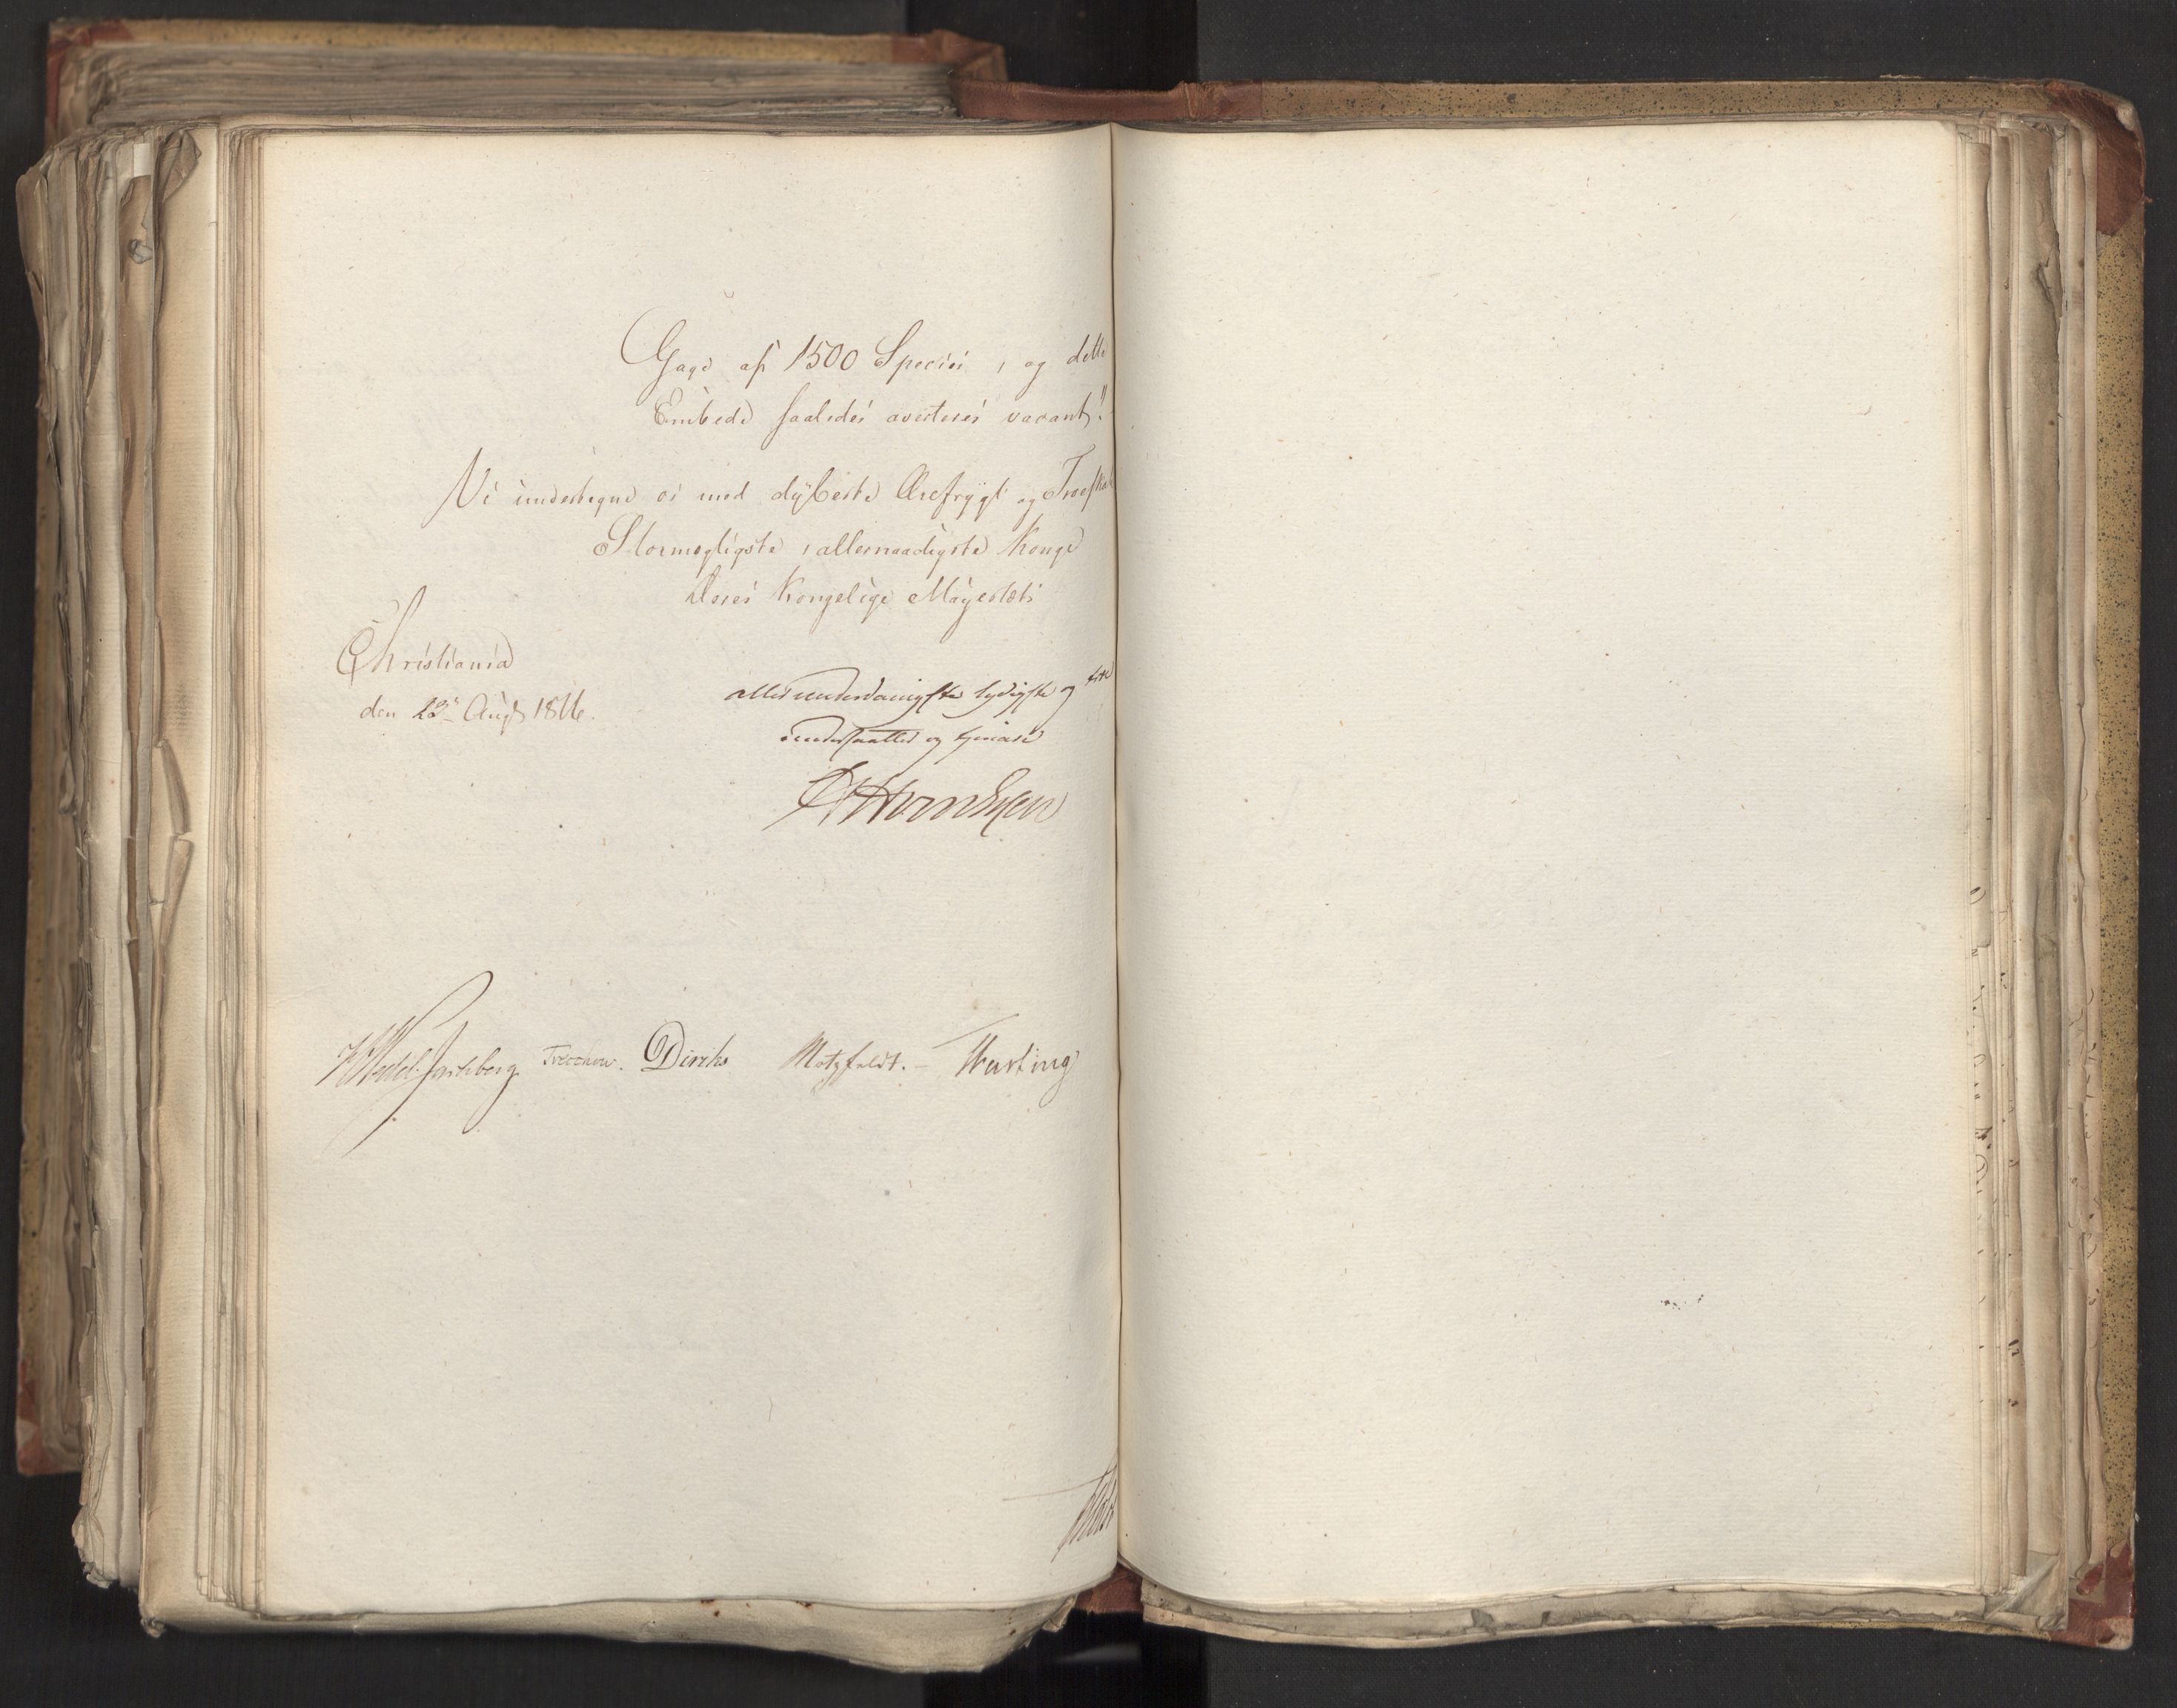 Gage af 1500 Species, og dette
Embede saaledes averteres vacant."
Vi undertegne os med dybeste Ærefrygt og Troeskab
Stormægtigste, allernaadigste Konge
Deres Kongelige Majestæts
Christiania
den 23de Augt 1816.
allerunderdanigste lydigste og
undersaatter og tjenere
Wedel Jarlsberg Treschow. Diriks Motzfeldt. -